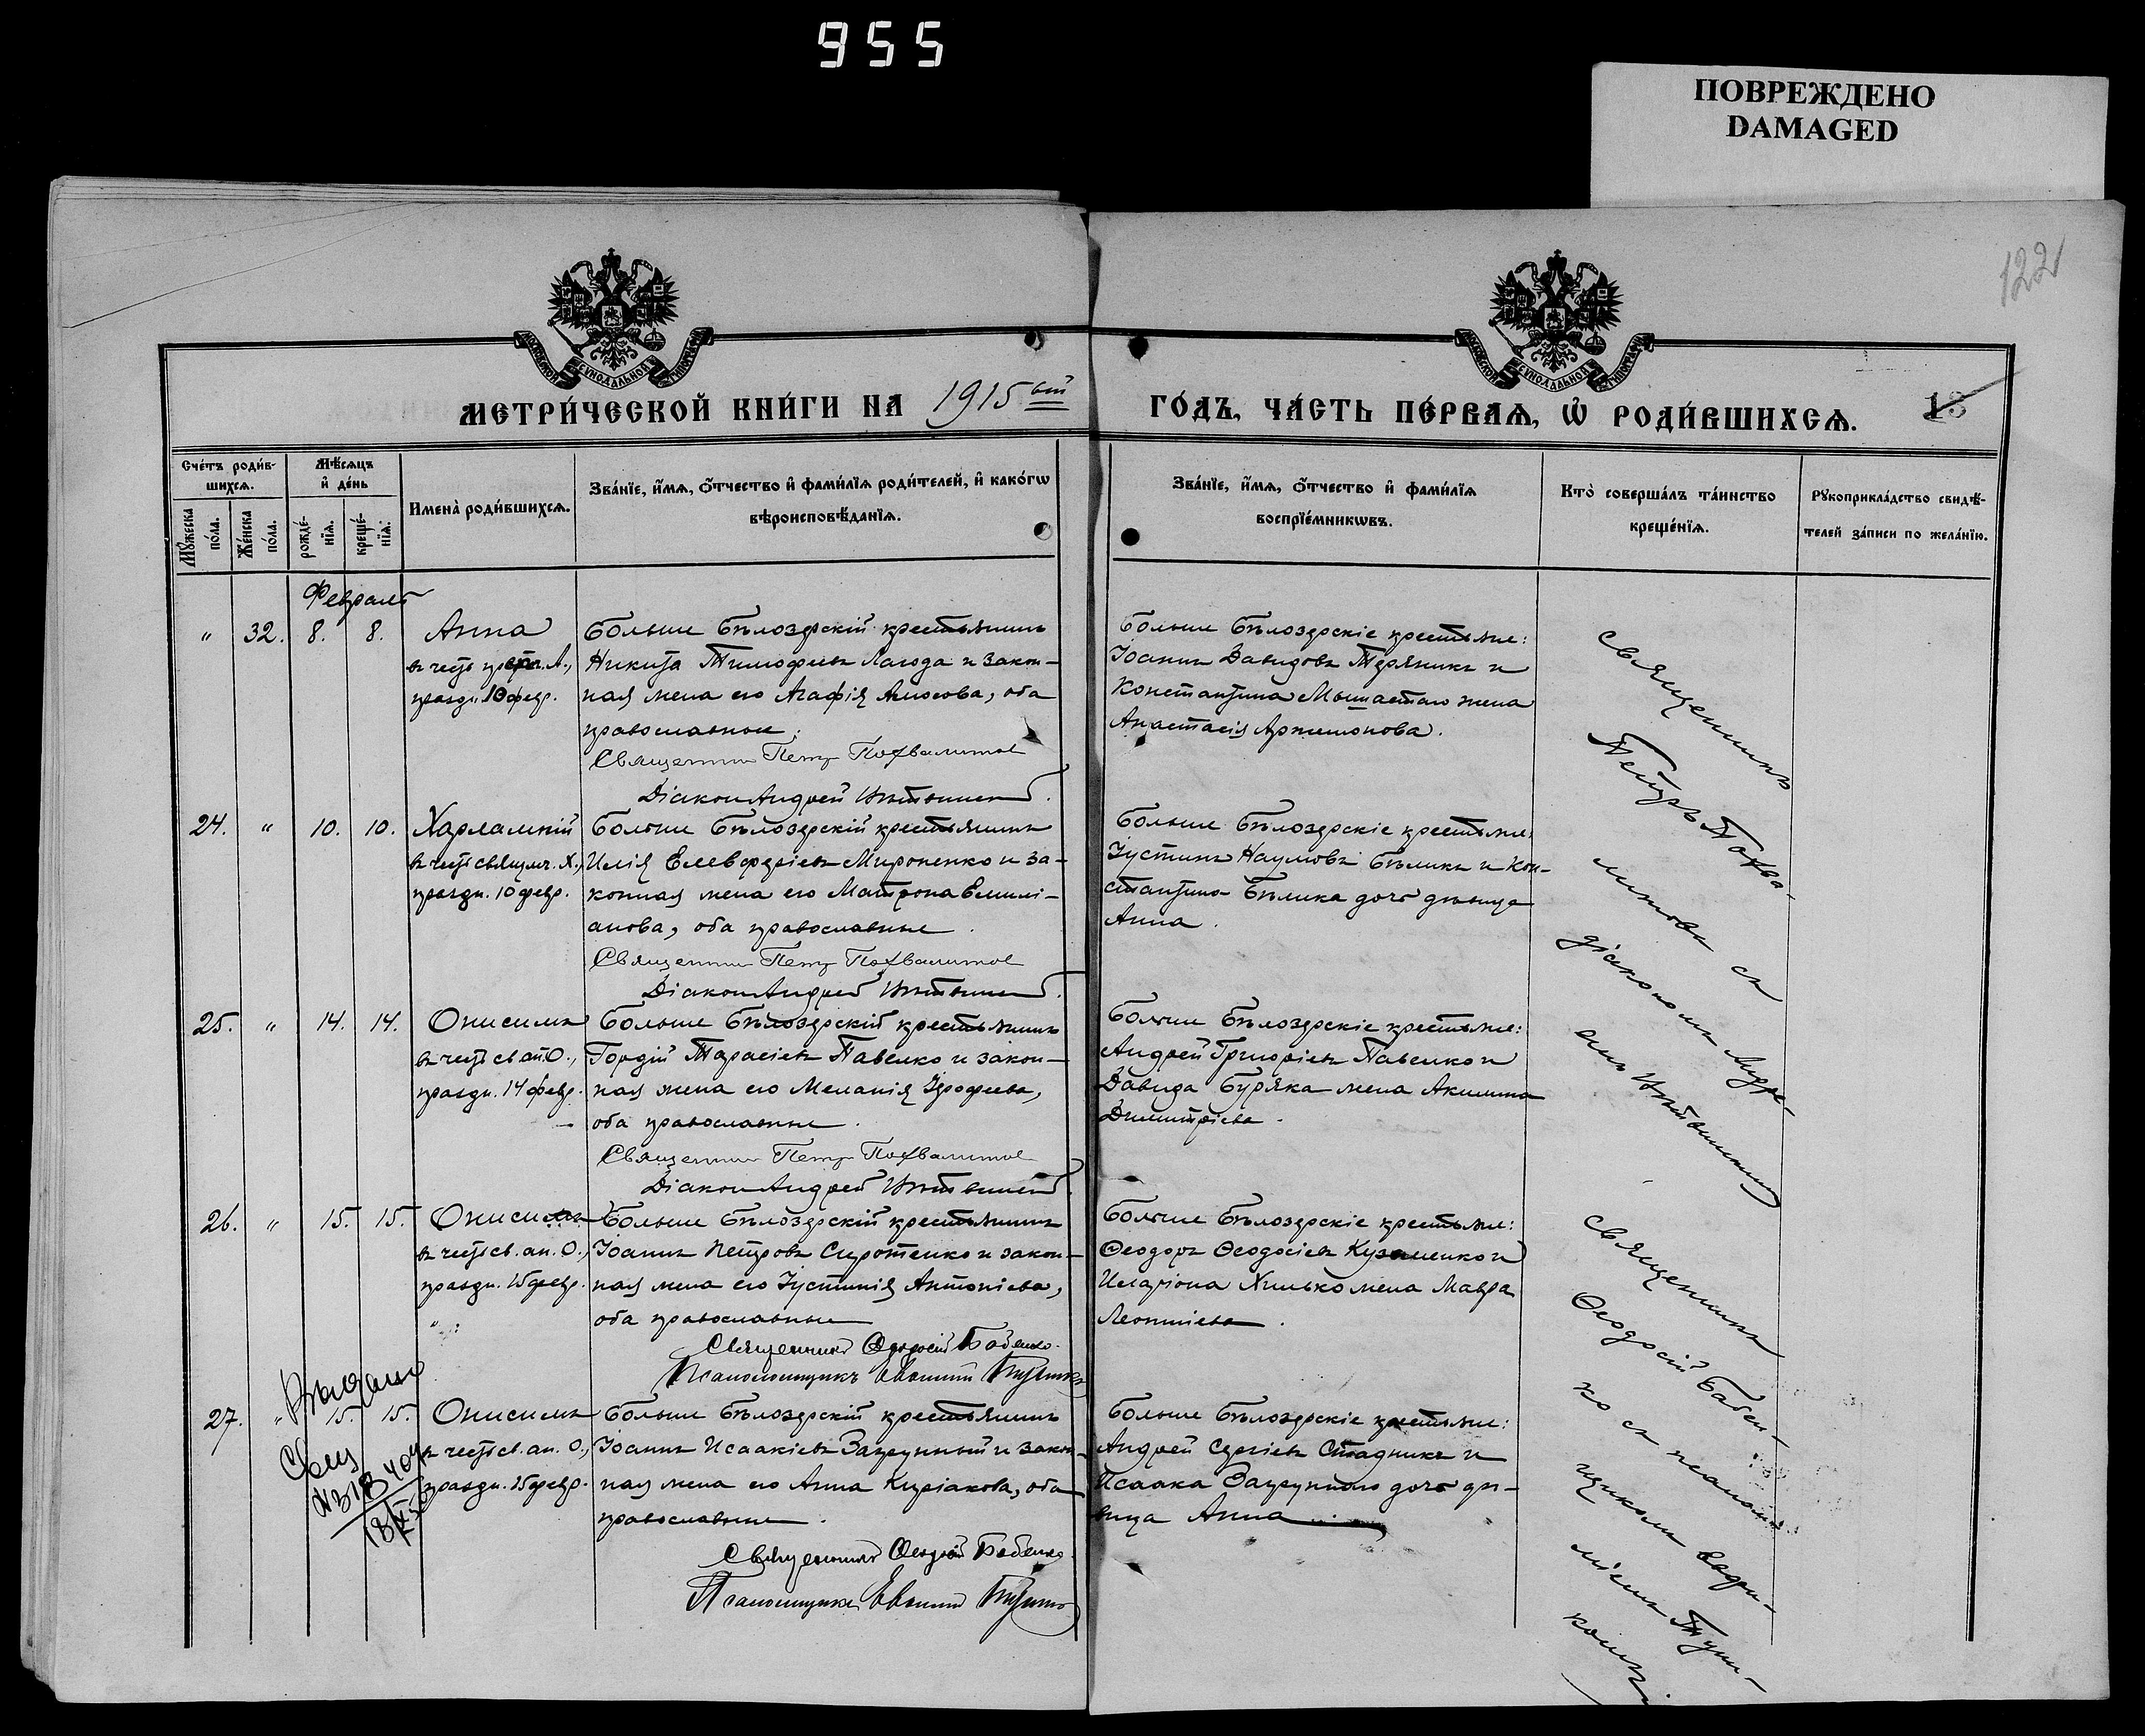 955
ПОВРЕЖДЕНО
DAMAGED
122
МЕТРИ́ЧЕСКОЙ КНИ́ГИ НА 1915 ый
ГО́ДЪ, ЧА́СТЬ ПЕ́РВАѦ, Ѽ РОДИ́ВШИХСѦ.
18
Счéтъ роди́в-
шихсѧ.
Мѣ́сѧцъ
и҆ де́нь
Мꙋ́жеска
по́ла.
Же́нска
по́ла.
рожде́-
нїѧ.
креще́-
нїѧ.
Имена̀ роди́вшихсѧ.
Зва́нїе, и҆́мѧ, ѻ҆́тчество и҆ фами́лїѧ роди́телей, и҆ како́гѡ
вѣроисповѣ́данїѧ.
Зва́нїе, и҆́мѧ, ѻ҆́тчество и҆ фами́лїѧ
воспрїе́мникѡвъ.
Кто̀ соверша́лъ та́инство
креще́нїѧ.
Рꙋкоприкла́дство свидѣ́-
телей за́писи по жела́нїю.
Февраль
" 32. 8. 8.
Анна
празд. 10 февр.
Больше Бѣлозерскій крестьянинъ
Никита Тимофеевъ Лагода и закон-
ная жена его Агафія Амосова, оба
православные.
Священникъ Петръ Похвалитовъ
Діаконъ Андрей
Больше Бѣлозерскіе крестьяне:
Іоаннъ Давидовъ Теряникъ и
Константина Мышастаго жена
Анастасія Артемонова.
24. " 10. 10.
Харлампій
въ честь священмч. Х.,
праздн. 10 февр.
Больше Бѣлозерскій крестьянинъ
Илія Елевферіевъ Мироненко и за-
конная жена его Матрона Емилі-
анова, оба православные.
Священникъ Петръ Похвалитовъ
Діаконъ Андрей
Больше Бѣлозерскіе крестьяне:
Іустинъ Наумовъ Бѣликъ и Кон-
стантина Бѣлика дочь дѣвица
Анна.
25. " 14. 14.
Онисимъ
въ честь св. ап. О.,
праздн. 14 февр.
Больше Бѣлозерскій крестьянинъ
Гордій Тарасіевъ Павенко и закон-
ная жена его Меланія Ерофеева,
оба православные.
Священникъ Петръ Похвалитовъ
Діаконъ Андрей
Больше Бѣлозерскіе крестьяне:
Андрей Григоріевъ Павенко и
Давида Буряка жена Акилина
Димитріева.
26. " 15. 15.
Онисимъ
въ честь св. ап. О.,
праздн. 15 февр.
Больше Бѣлозерскій крестьянинъ
Іоаннъ Петровъ Сиротенко и закон-
ная жена его Іустинія Антоніева,
оба православные
Священникъ Ѳеодосій Бабенко.
Псаломщикъ Евфимій
Больше Бѣлозерскіе крестьяне:
Ѳеодоръ Ѳеодосіевъ Кузьменко и
Иларіона Хилько жена Мавра
Леонтіева.
Выдано
27. " 15. 15.
Онисимъ
въ честь св. ап. О.,
праздн. 15 февр.
Больше Бѣлозерскій крестьянинъ
Іоаннъ Исаакіевъ Загрунный и закон-
ная жена его Анна Киріакова, оба
православные.
Священникъ Ѳеодосій Бабенко
Псаломщикъ Евфимій
Больше Бѣлозерскіе крестьяне:
Андрей Сергіевъ Стадникъ и
Исаака Загруннаго дочь дѣ-
вица Анна
Священникъ
Петръ Похва-
литовъ съ
діакономъ Андре-
емъ
Священникъ
Ѳеодосій Бабен-
ко съ псалом-
щикомъ Евфи-
міемъ